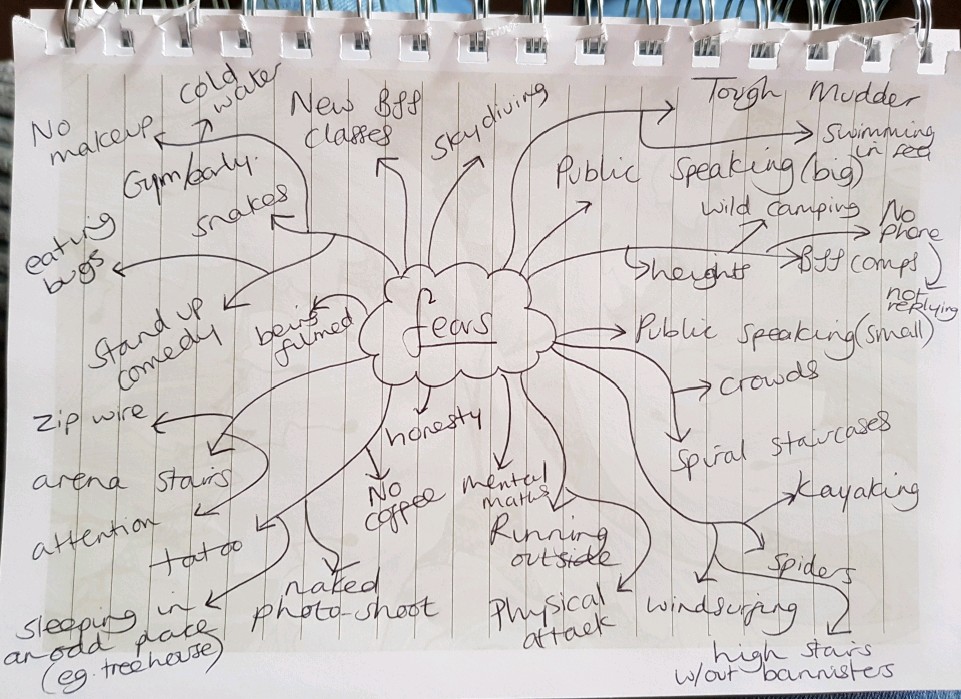 cold
water
No
makeup
Gym/early.
New Bff
classes
skydiving
Tough Mudder
swimming
in sea
Public Speaking (big)
snakes
wild camping
No
phone
eating
bugs
heights
Bff (comps)
not
replying
Stand up
comedy
being
filmed
fears
Public speaking (small)
crowds
zip wire
honesty
Spiral staircases
arena stairs
No
coffee
mental
maths
Kayaking
attention
tatoo
Running
outside
Spiders
naked
photo-shoot
Physical
attack
windsurfing
sleeping in
an odd place
(eg. treehouse)
high stairs
w/out bannisters